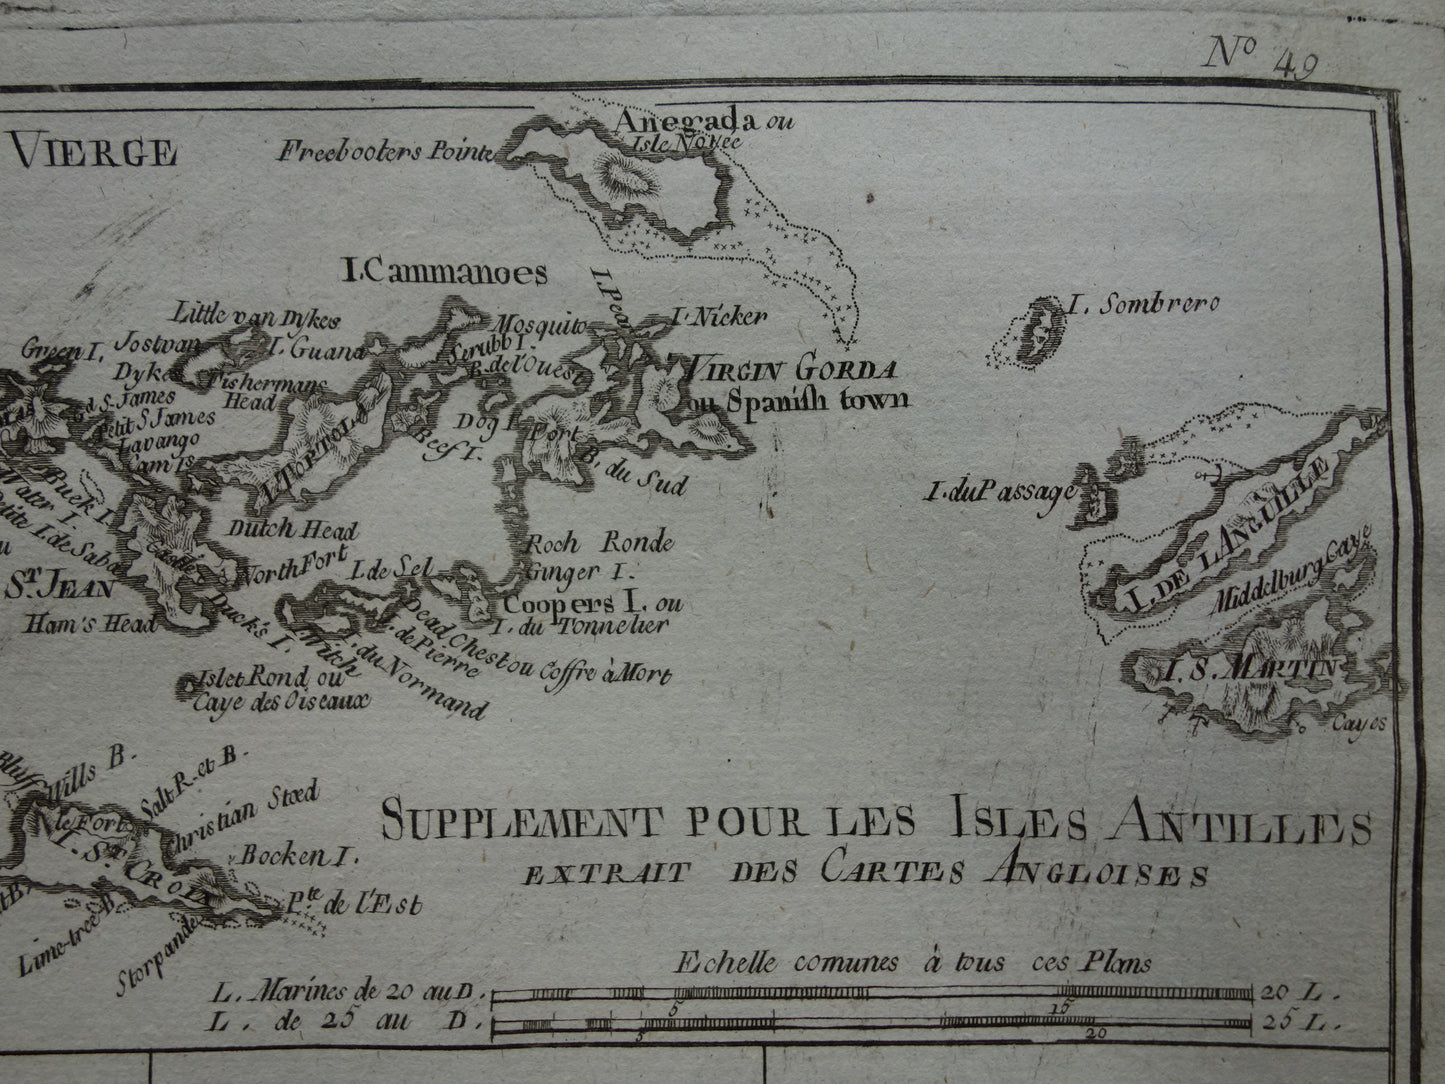 N.º 49
VIERGE
Freebooters Pointe
Anegada ou
Isle Noyée
I. Cammanoes
I. Sombrero
Little van Dykes
Mosquito
I. Nicker
Green I.
Jostvan
Dykes
I. Guana
Scrubb I.
P. de l'Ouest
VIRGIN GORDA
ou Spanish town
Fishermans
Head
Gd S. James
Petit S James
Lavango
Cam Is
Dog I.
Port
Beef I.
B. du Sud
I. TORTOLA
I. du Passage
I. DE L'ANGUILLE
Buck I.
Water I.
Petite I. de Saba
Dutch Head
Castle
North Fort
I. de Sel
Roch Ronde
Ginger I.
Coopers I. ou
I. du Tonnelier
Middelburg Caye
ST. JEAN
Ham's Head
Duck's I.
I. Witch
I. du Normand
I. de Pierre
Dead Chest ou Coffre à Mort
I. S. MARTIN
Cayes
Islet Rond ou
Caye des Oiseaux
Bluff
Wills B.
Salt R. et B.
Christian Stœd
le Fort
I. ST. CROIX
Bocken I.
Pte de l'Est
Lime-tree B.
Storpande
SUPPLEMENT POUR LES ISLES ANTILLES
EXTRAIT DES CARTES ANGLOISES
Echelle comunes à tous ces Plans
L. Marines de 20 au D. 5 15 20 L.
L. de 25 au D. 5 20 25 L.